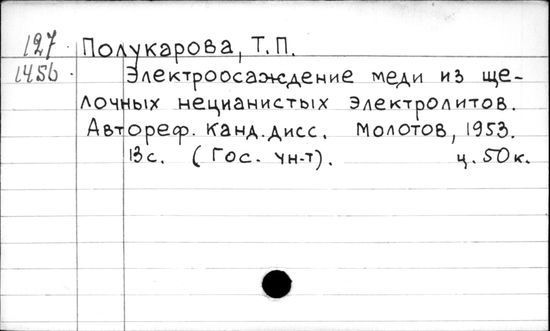 127 Полукарова, Т.П.
1456 Электроосаждение меди из ще-
лочных нецианистых электролитов.
Автореф. канд. дисс. Молотов, 1953.
13с. (Гос. ун-т). ц. 50к.